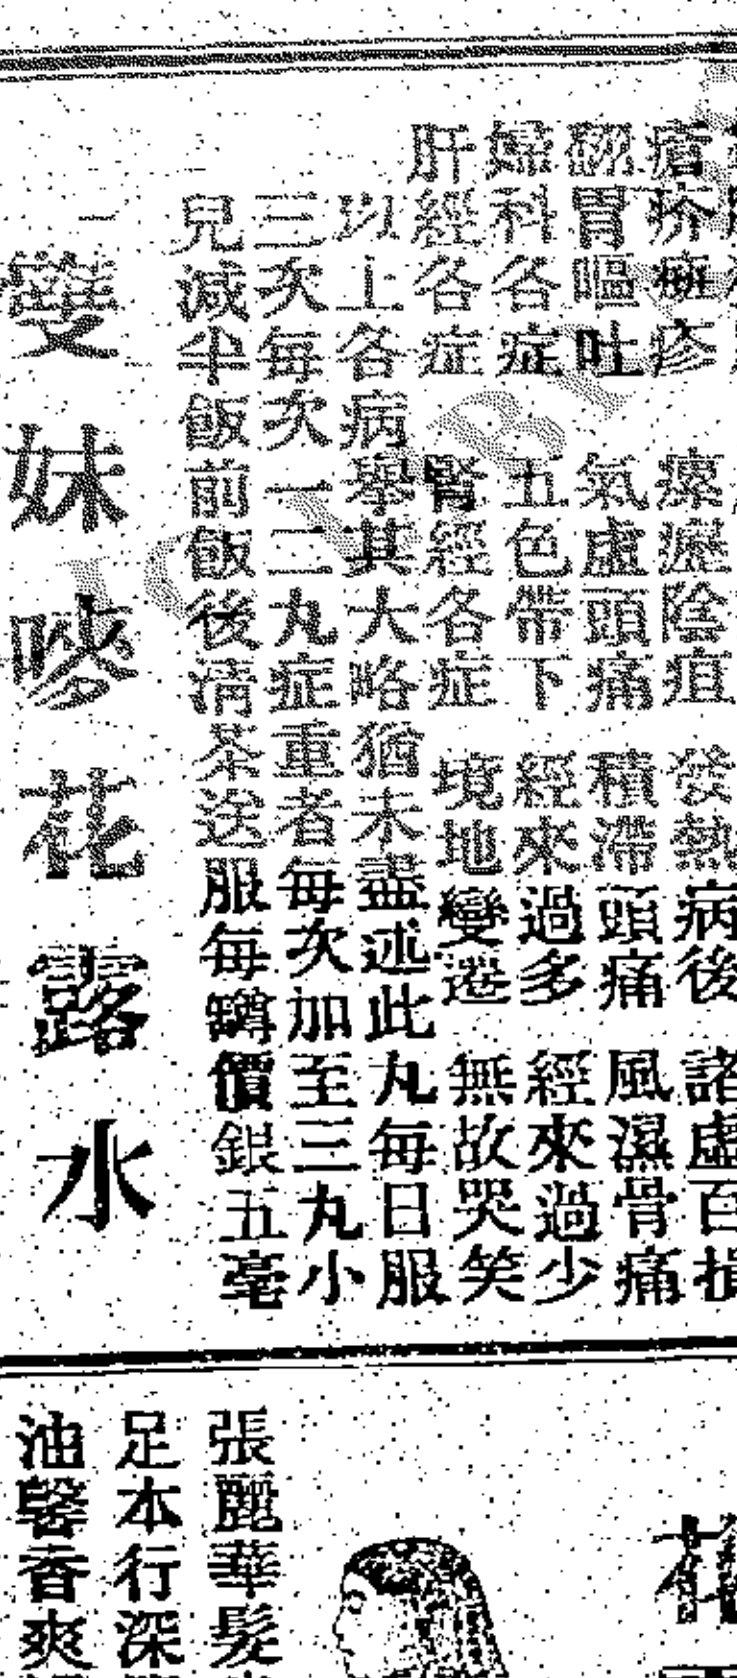 瘡疥癍疹 瘰癧陰疽 發熱病後 諸虛百損
翻胃嘔吐 氣虛頭痛 積滯頭痛 風濕骨痛
婦科各症 五色帶下 經來過多 經來過少
肝經各症 腎經各症 境地變遷 無故哭笑
以上各病舉其大略猶未盡述此丸每日服
三次每次一二丸症重者每次加至三丸小
兒減半飯前飯後清茶送服每罇價銀五毫
雙妹嘜花露水
張麗華髮
足本行深
油馨香爽